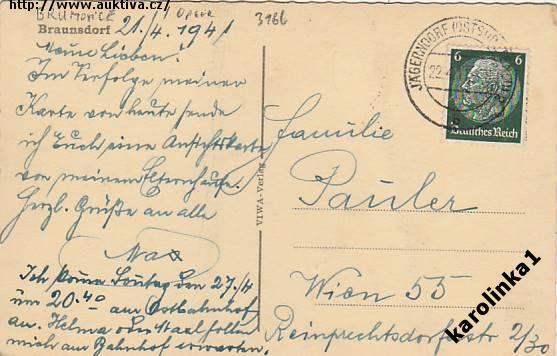 http://www.auktiva.cz/
BRUMOVICE
OPAVA
316b
Braunsdorf
21./4. 1941
Meine Lieben!
Im Verfolge meiner
Karte von heute sende
ich Euch eine Ansichtskarte
von meinem Elternhause.
Herzl. Grüße an alle
Max
Ich komme Sonntag den 27./4
um 20.40 am Ostbahnhof
an. Helma oder sollen
mich am Bahnhof erwarten.
VIWA-Verlag
JÄGERNDORF (OSTSUDETENL)
22.4.
6 6
Deutsches Reich
Familie
Pauler
Wien 55
Reinprechtsdorferstr 2/30
karolinka1